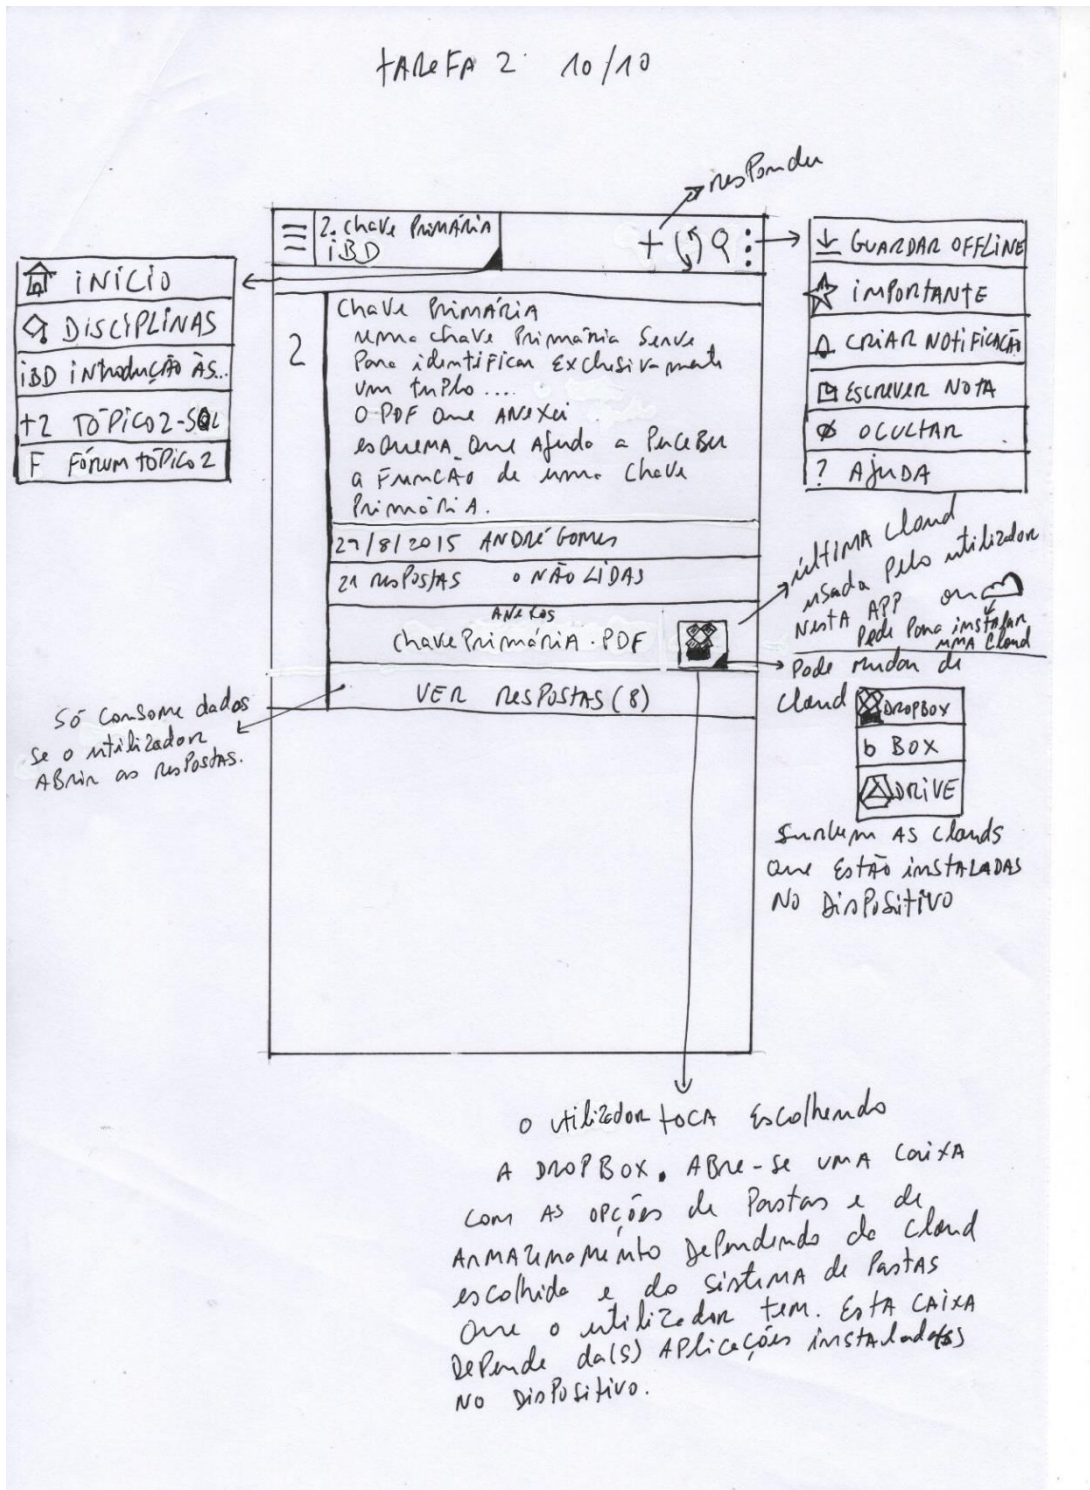 TAREFA 2 10/10
responder
2. Chave Primária
iBD
+
INÍCIO
DISCIPLINAS
iBD iNtrodução ÀS...
t2 TÓPICO 2-SQL
F FÓRUM TÓPICO 2
GUARDAR OFFLINE
IMPORTANTE
CRIAR NOTIFICAÇÃO
ESCREVER NOTA
OCULTAR
? AJUDA
2
Chave Primária
uma chave Primária Serve
Para identificar Exclusivamente
um tuplo....
O PDF que ANEXei
esquema que Ajuda a PerceBer
a Função de uma Chave
Primária.
29/8/2015 ANDRÉ Gomes
21 resPostAS 0 NÃO LIDAS
ANEXOS
chavePrimária.PDF
VER resPostAS (8)
Só consome dados
se o utilizador
ABrir as resPostas.
última Cloud
usada Pelo utilizador
Nesta APP ou
Pede Para instalar
uma Cloud
Pode mudar de
Cloud
DROPBOX
b BOX
DRIVE
Surgem AS Clouds
que Estão instALADAS
NO DisPositivo
O utilizador toca Escolhendo
A DROPBOX. ABre-se uma caixa
com AS opções de Pastas e de
ARMAzenamento Dependendo da Cloud
escolhida e do sistema de Pastas
que o utilizador tem. Esta caixa
DePende da(s) APlicações instalada(s)
NO DisPositivo.